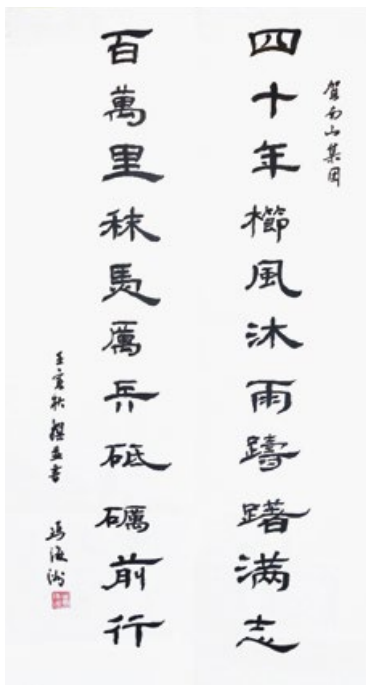 賀南山集团
四十年櫛風沐雨躊躇滿志
百萬里秣馬厲兵砥礪前行
壬寅秋撰並書